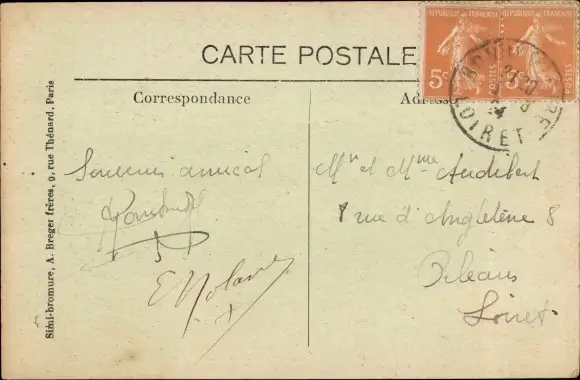 CARTE POSTALE
RÉPUBLIQUE FRANÇAISE
5c
POSTES
RÉPUBLIQUE FRANÇAISE
5c
POSTES
LOIRET
Correspondance
Adresse
Souvenir amical
Mr et Mme Audibert
8 rue d'Angleterre 8
Orléans
Loiret
Simil-bromure, A. Breger frères, 9, rue Thénard, Paris